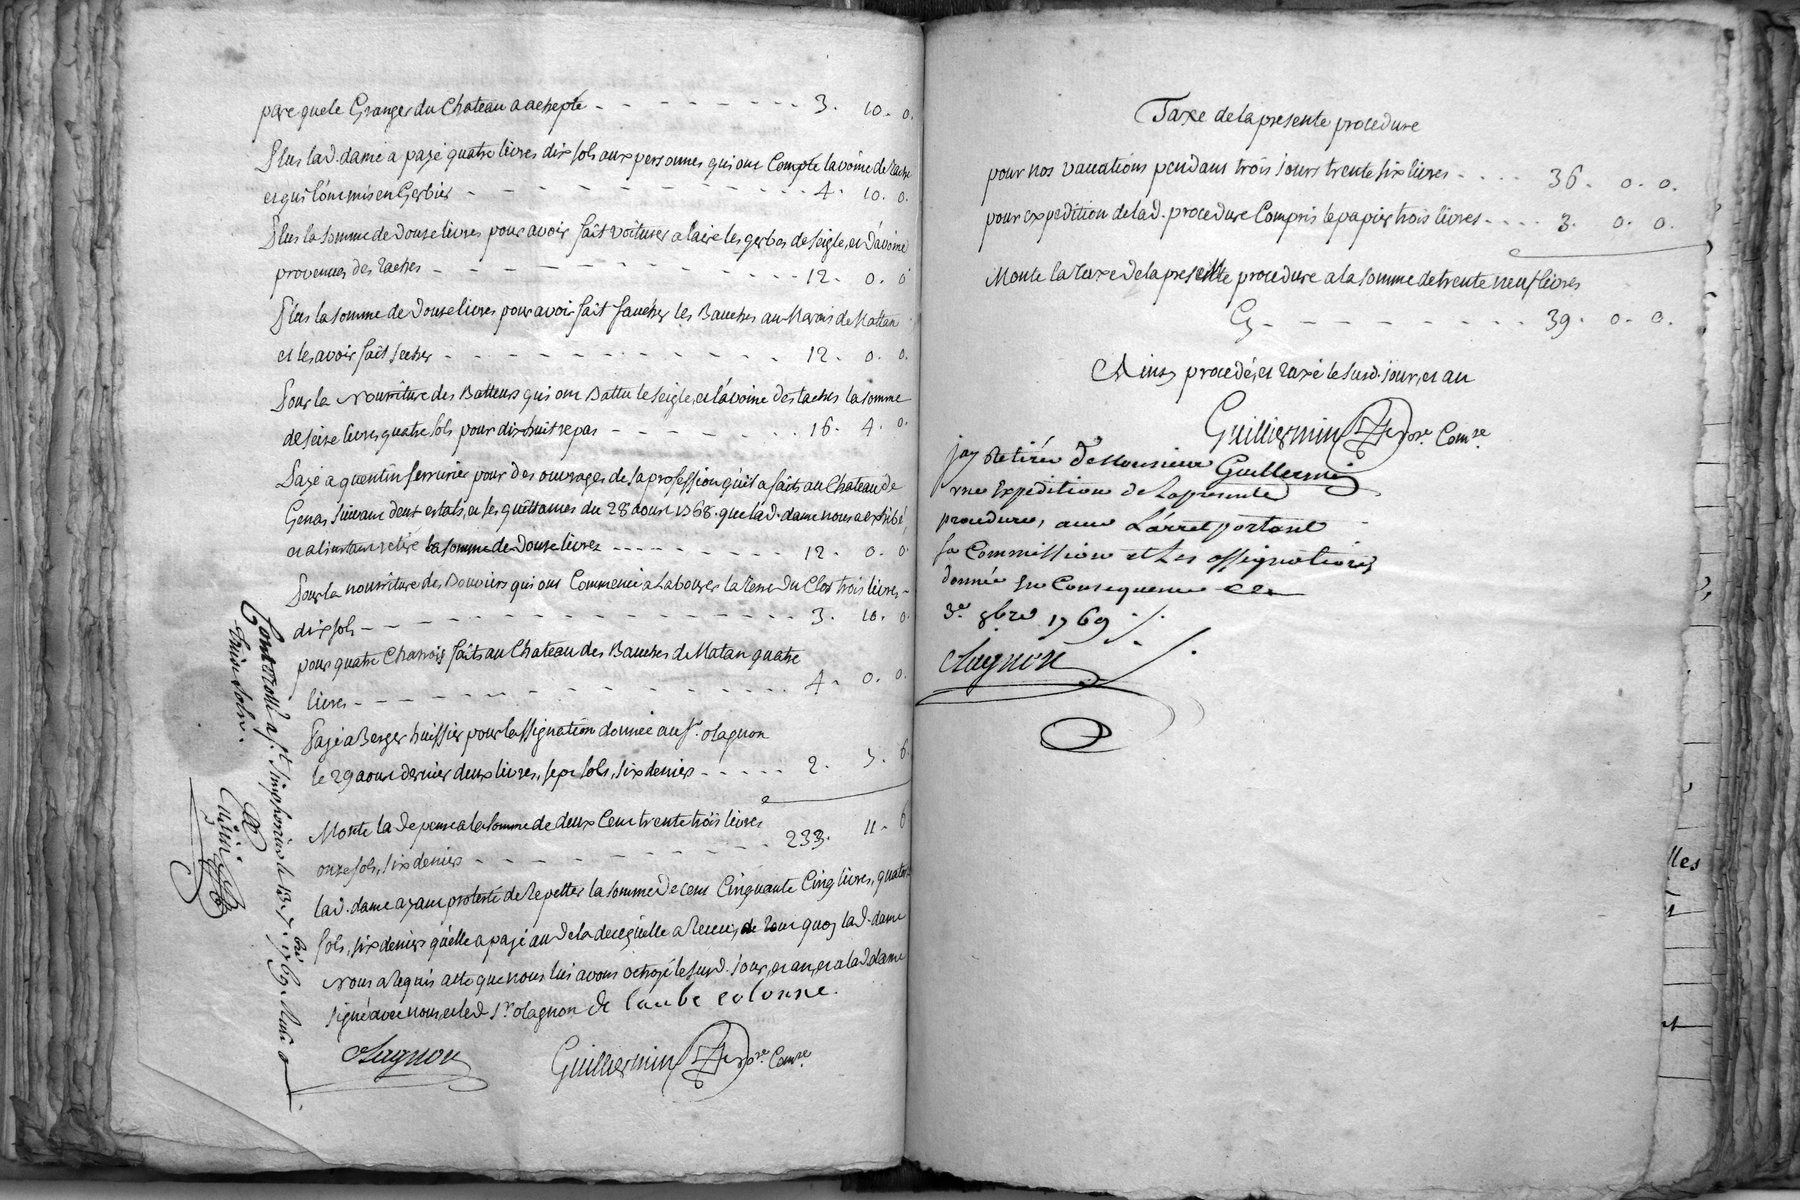 par que le Granger du Chateau a achepté - - - - - - - - 3. 10. 0.
Plus lad. dame a payé quatre livres dix sols aux personnes qui ont Compté lavoine de
et qui l'ont mis en Gerbier - - - - - - - - - - 4. 10. 0.
Plus la somme de Douze livres pour avoir fait voiturer a laire les gerbes de seigle, et d'avoine
provenues des taches - - - - - - - - - 12. 0. 0
Plus la somme de Douze livres pour avoir fait faucher les Bauches au Marais de Mattan
et les avoir fait secher - - - - - - - - - - 12. 0. 0.
Pour la nourriture des Batteurs qui ont Battu le seigle, et l'avoine des taches la somme
de seize livres quatre sols pour dix huit repas - - - - - - 16. 4. 0.
Payé a quentin serrurier pour des ouvrages de sa profession qu'il a faits au Chateau de
Genas suivant deux estats, et les quittances du 28 aoust 1768. que lad. dame nous a exhibé,
et a l'instant retiré la somme de Douze livres - - - - - - 12. 0. 0
Pour la nourriture des Bouviers qui ont Commencé a Labourer la terre du Clos trois livres
dix sols - - - - - - - - - - - - 3. 10. 0
pour quatre Charrois faits au Chateau des Bauches de Matan quatre
livres - - - - - - - - - - - - 4. 0. 0.
Payé a Berger huissier pour lassignation donnée au Sr. olagnon
le 29 aoust dernier deux livres, sept sols, six deniers - - - - - 2. 7. 6.
Monte la depense a la somme de deux Cent trente trois livres
onze sols, six deniers - - - - - - - - - 233. 11. 6
lad. dame ayant protesté de repetter la somme de cent Cinquante Cinq livres, quatre
sols, six deniers qu'elle a payé au dela de ce qu'elle a Receu, de tout quoy lad. dame
nous a Requis acte que nous lui avons octroyé le susd. jour, et an, et a lad. dame
signé avec nous, et led. Sr. olagnon de laube colonne.
Olagnon Guilliermin Comre.
Controllé a St. Simphorien le 13. 7bre 1769. Reçu
treize sols.
Taxe de la presente procedure
pour nos vacations pendant trois jours trente six livres - - - - 36. 0. 0.
pour expedition de lad. procedure Compris le papier trois livres - - - - 3. 0. 0.
Monte la taxe de la presente procedure a la somme de trente neuf livres
Cy - - - - - - - - - 39. 0. 0.
Ainsy procedé, et taxé le susd. jour, et an
Guilliermin Comre.
jay Retirée de Monsieur Guillermin
une Expedition de La presente
procedure, avec L'arret portant
sa Commission et Les assignations
donnée En Consequence Ce
3e 8bre 1769
Olagnon
lles